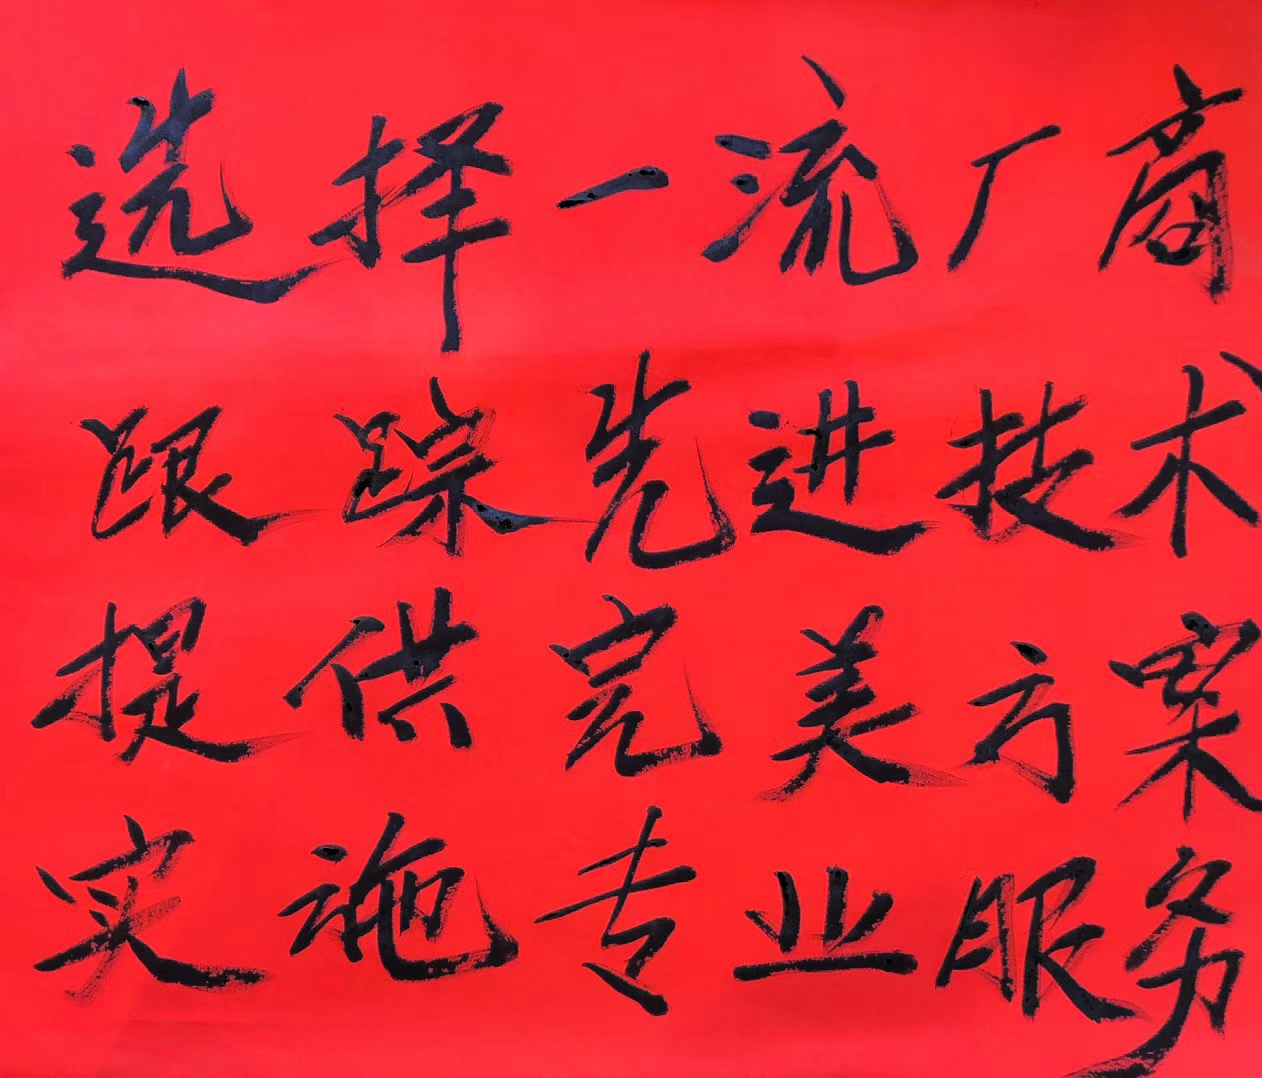 选择一流厂商
跟踪先进技术
提供完美方案
实施专业服务